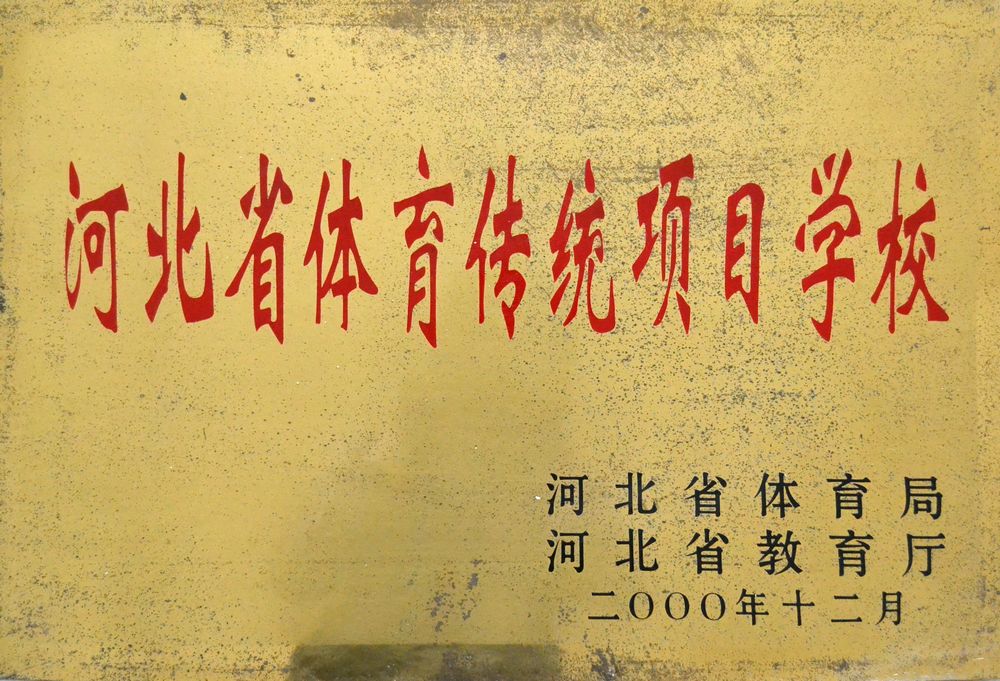 河北省体育传统项目学校
河北省体育局
河北省教育厅
二〇〇〇年十二月